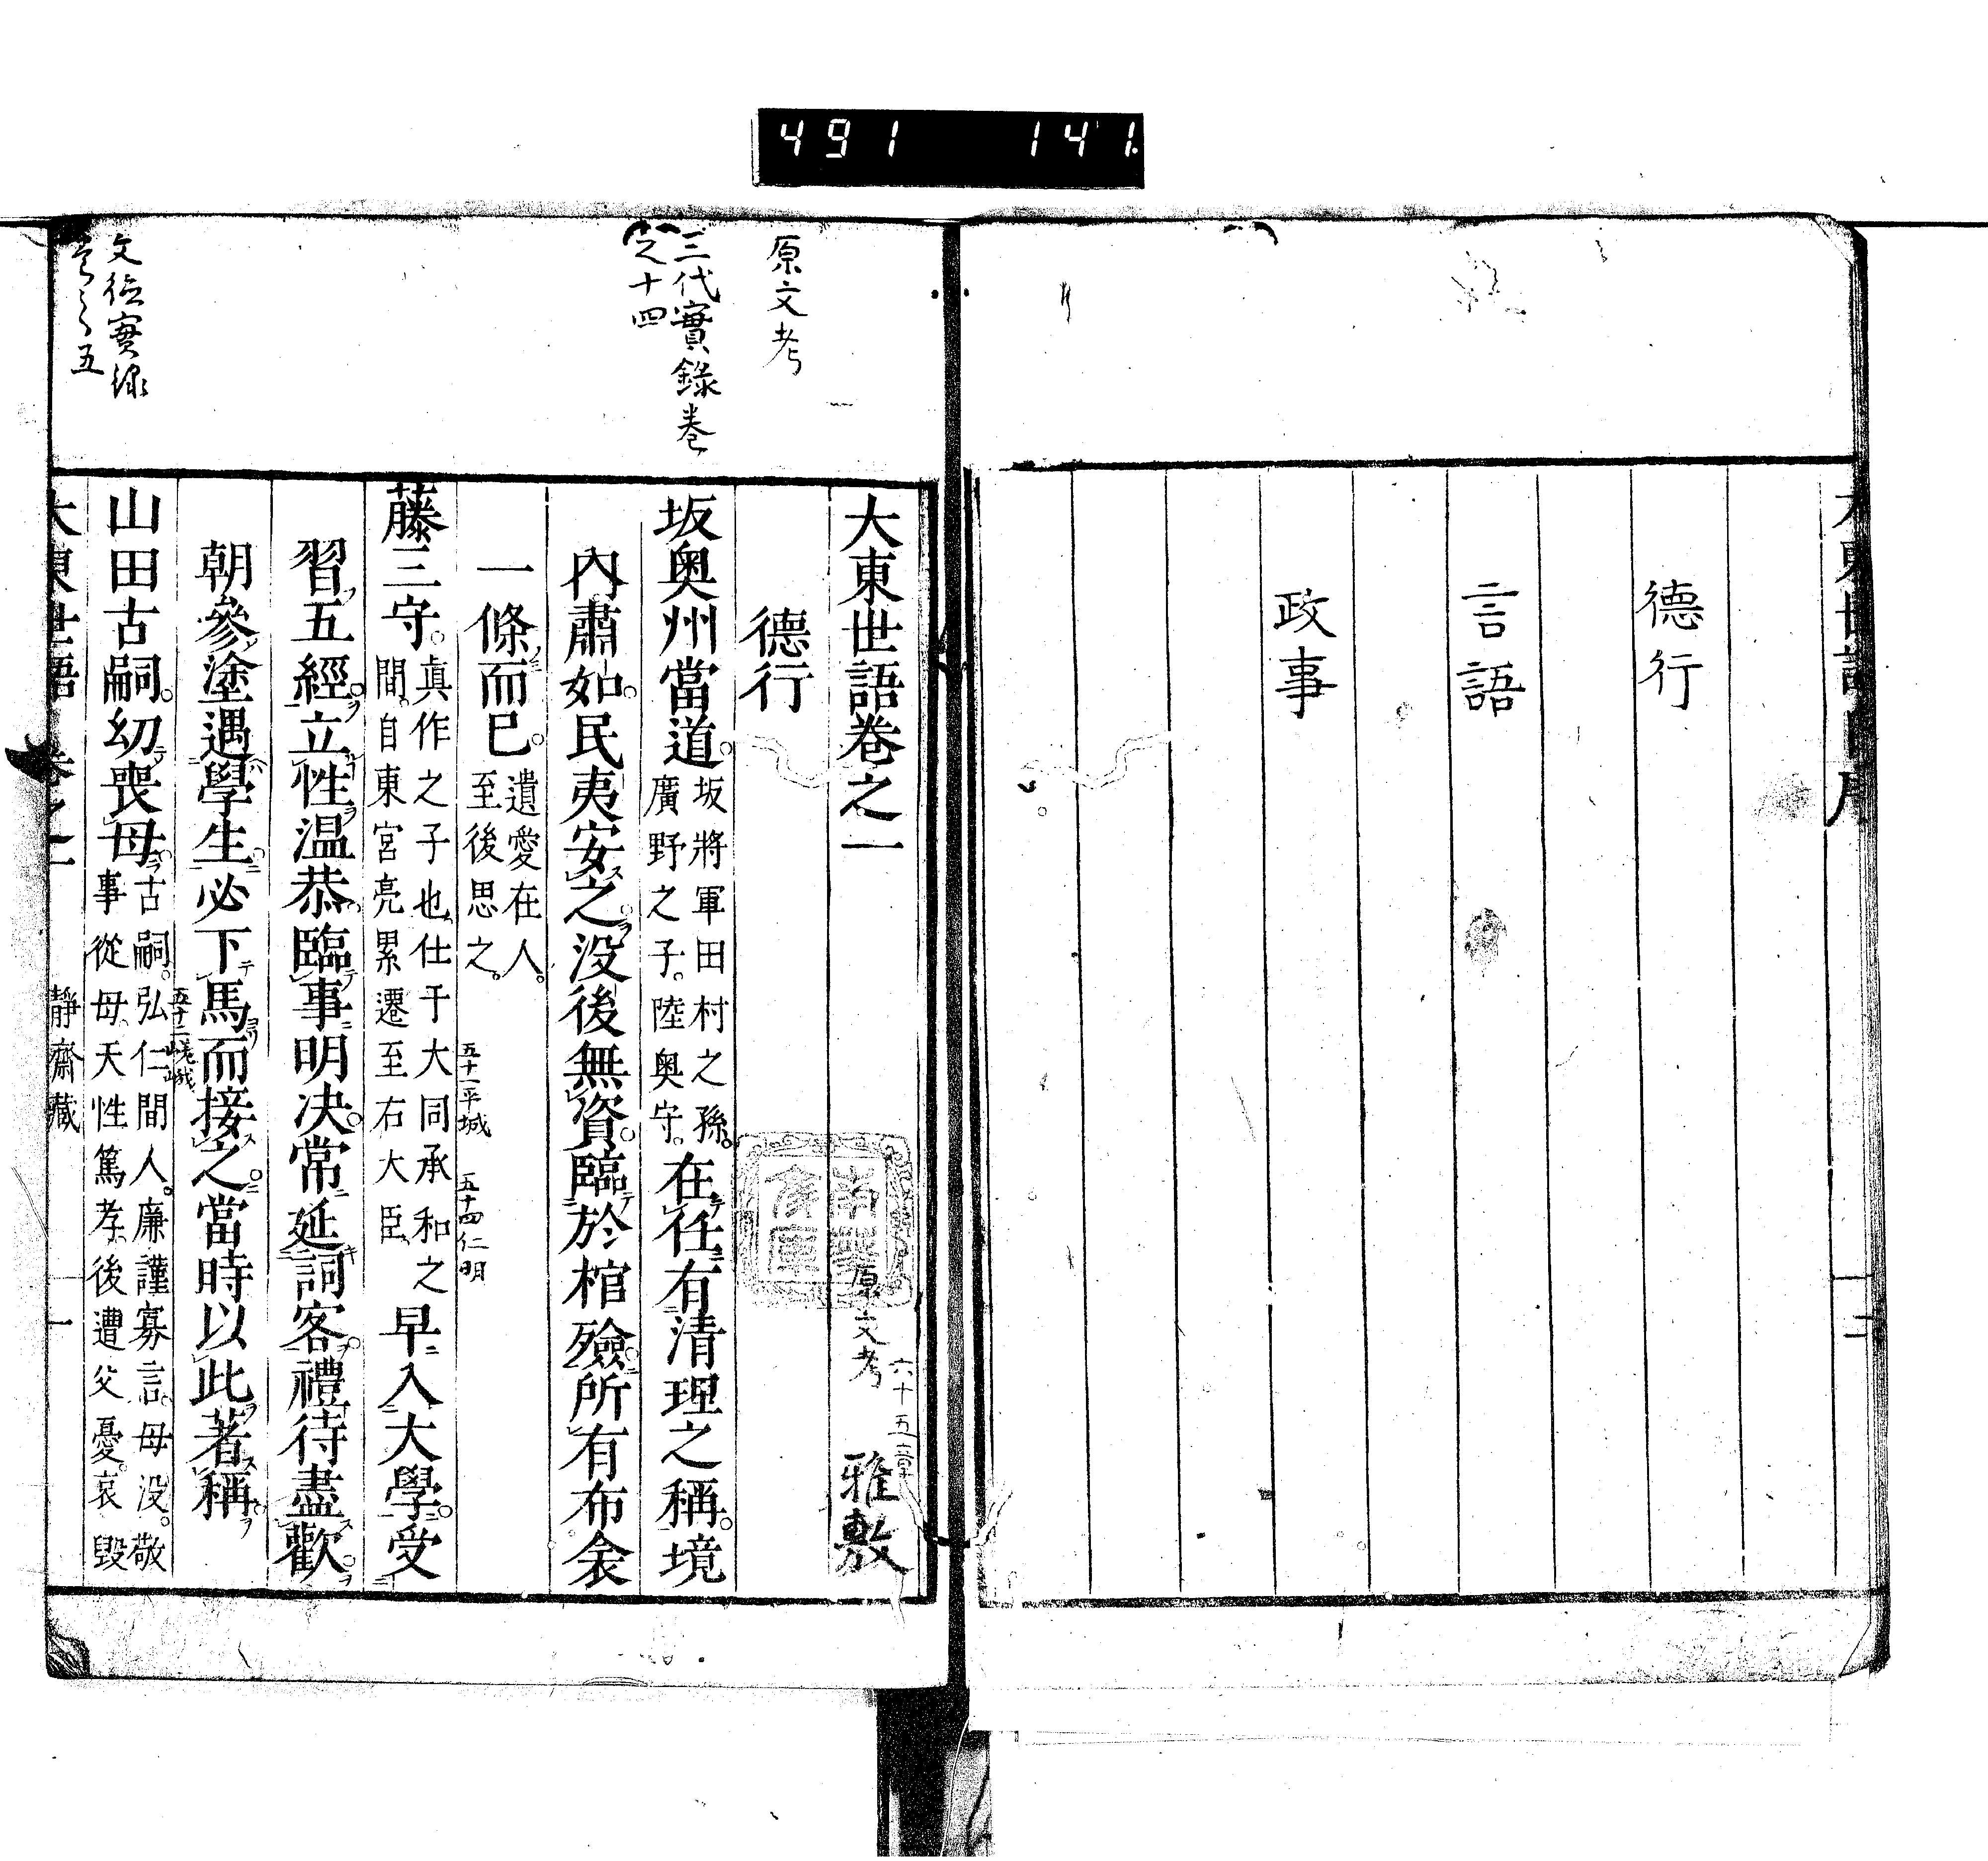 491 141
德行
言語
政事
原文考
三代實錄巻
之十四
文徳實録
五
大東世語卷之一
原文考
六十五章
雅敷
德行
坂奧州當道。坂將軍田村之孫。廣野之子。陸奧守。在任有清理之稱。境
內肅如。民夷安之。没後無資。臨於棺殮。所有布衾
一條而已。遺愛在人。至後思之。
五十一平城 五十四仁明
藤三守。真作之子也、仕于大同承和之間。自東宮亮累遷至右大臣、早入大學。受
習五經。立性温恭。臨事明决。常延詞客。禮待盡歡。
朝參塗遇學生。必下馬而接之。當時以此著稱。
五十二嵯峨
山田古嗣。幼喪母。古嗣。弘仁間人。廉謹寡言。母没。敬事從母。天性篤孝、後遭父憂。哀毀
大東世語 卷之一 一 靜齋藏